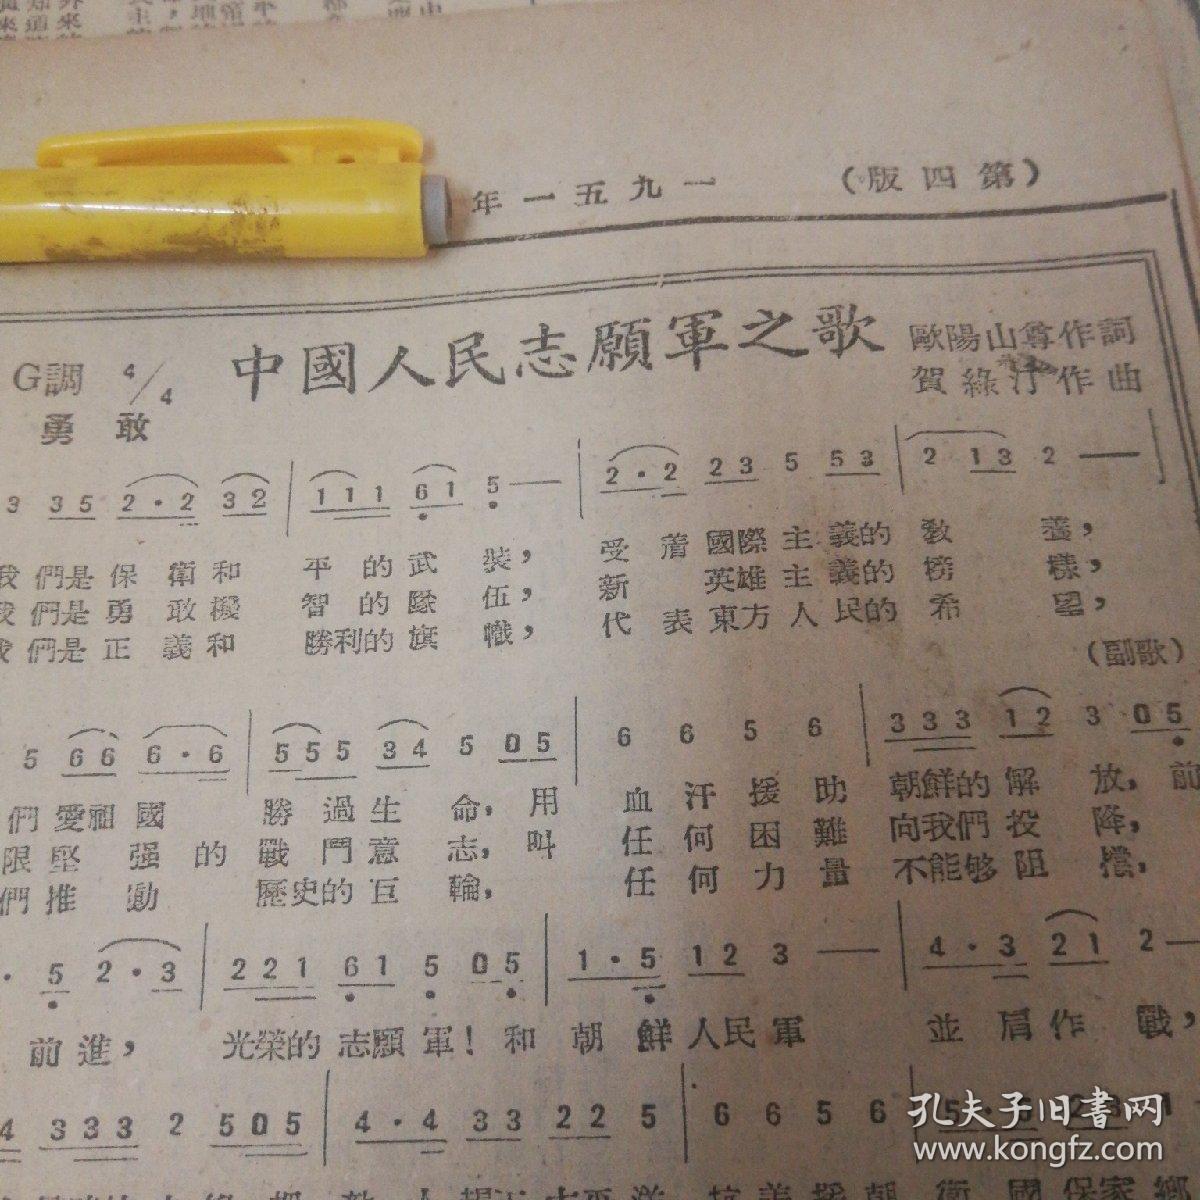 年一五九一
（版四第）
中國人民志願軍之歌
歐陽山尊作詞
賀綠汀作曲
G調 4/4
勇敢
3 35 2·2 32 | 111 61 5 — | 2·2 23 5 53 | 2 13 2 — |
我們是保衛和平的武裝，受着國際主義的教養，
我們是勇敢機智的隊伍，新英雄主義的榜樣，
我們是正義和勝利的旗幟，代表東方人民的希望，
（副歌）
5 66 6·6 | 555 34 5 05 | 6 6 5 6 | 333 12 3 05
們愛祖國勝過生命，用血汗援助朝鮮的解放，前
限堅强的戰鬥意志，叫任何困難向我們投降，
們推動歷史的巨輪，任何力量不能够阻擋，
· 5 2·3 | 221 61 5 05 | 1·5 12 3 — | 4·3 21 2 —
前進，光榮的志願軍！和朝鮮人民軍並肩作戰，
4 333 2 505 | 4·4 33 22 5 | 6 6 5 6 |
抗美援朝衛國保家鄉
孔夫子旧書网
www.kongfz.com